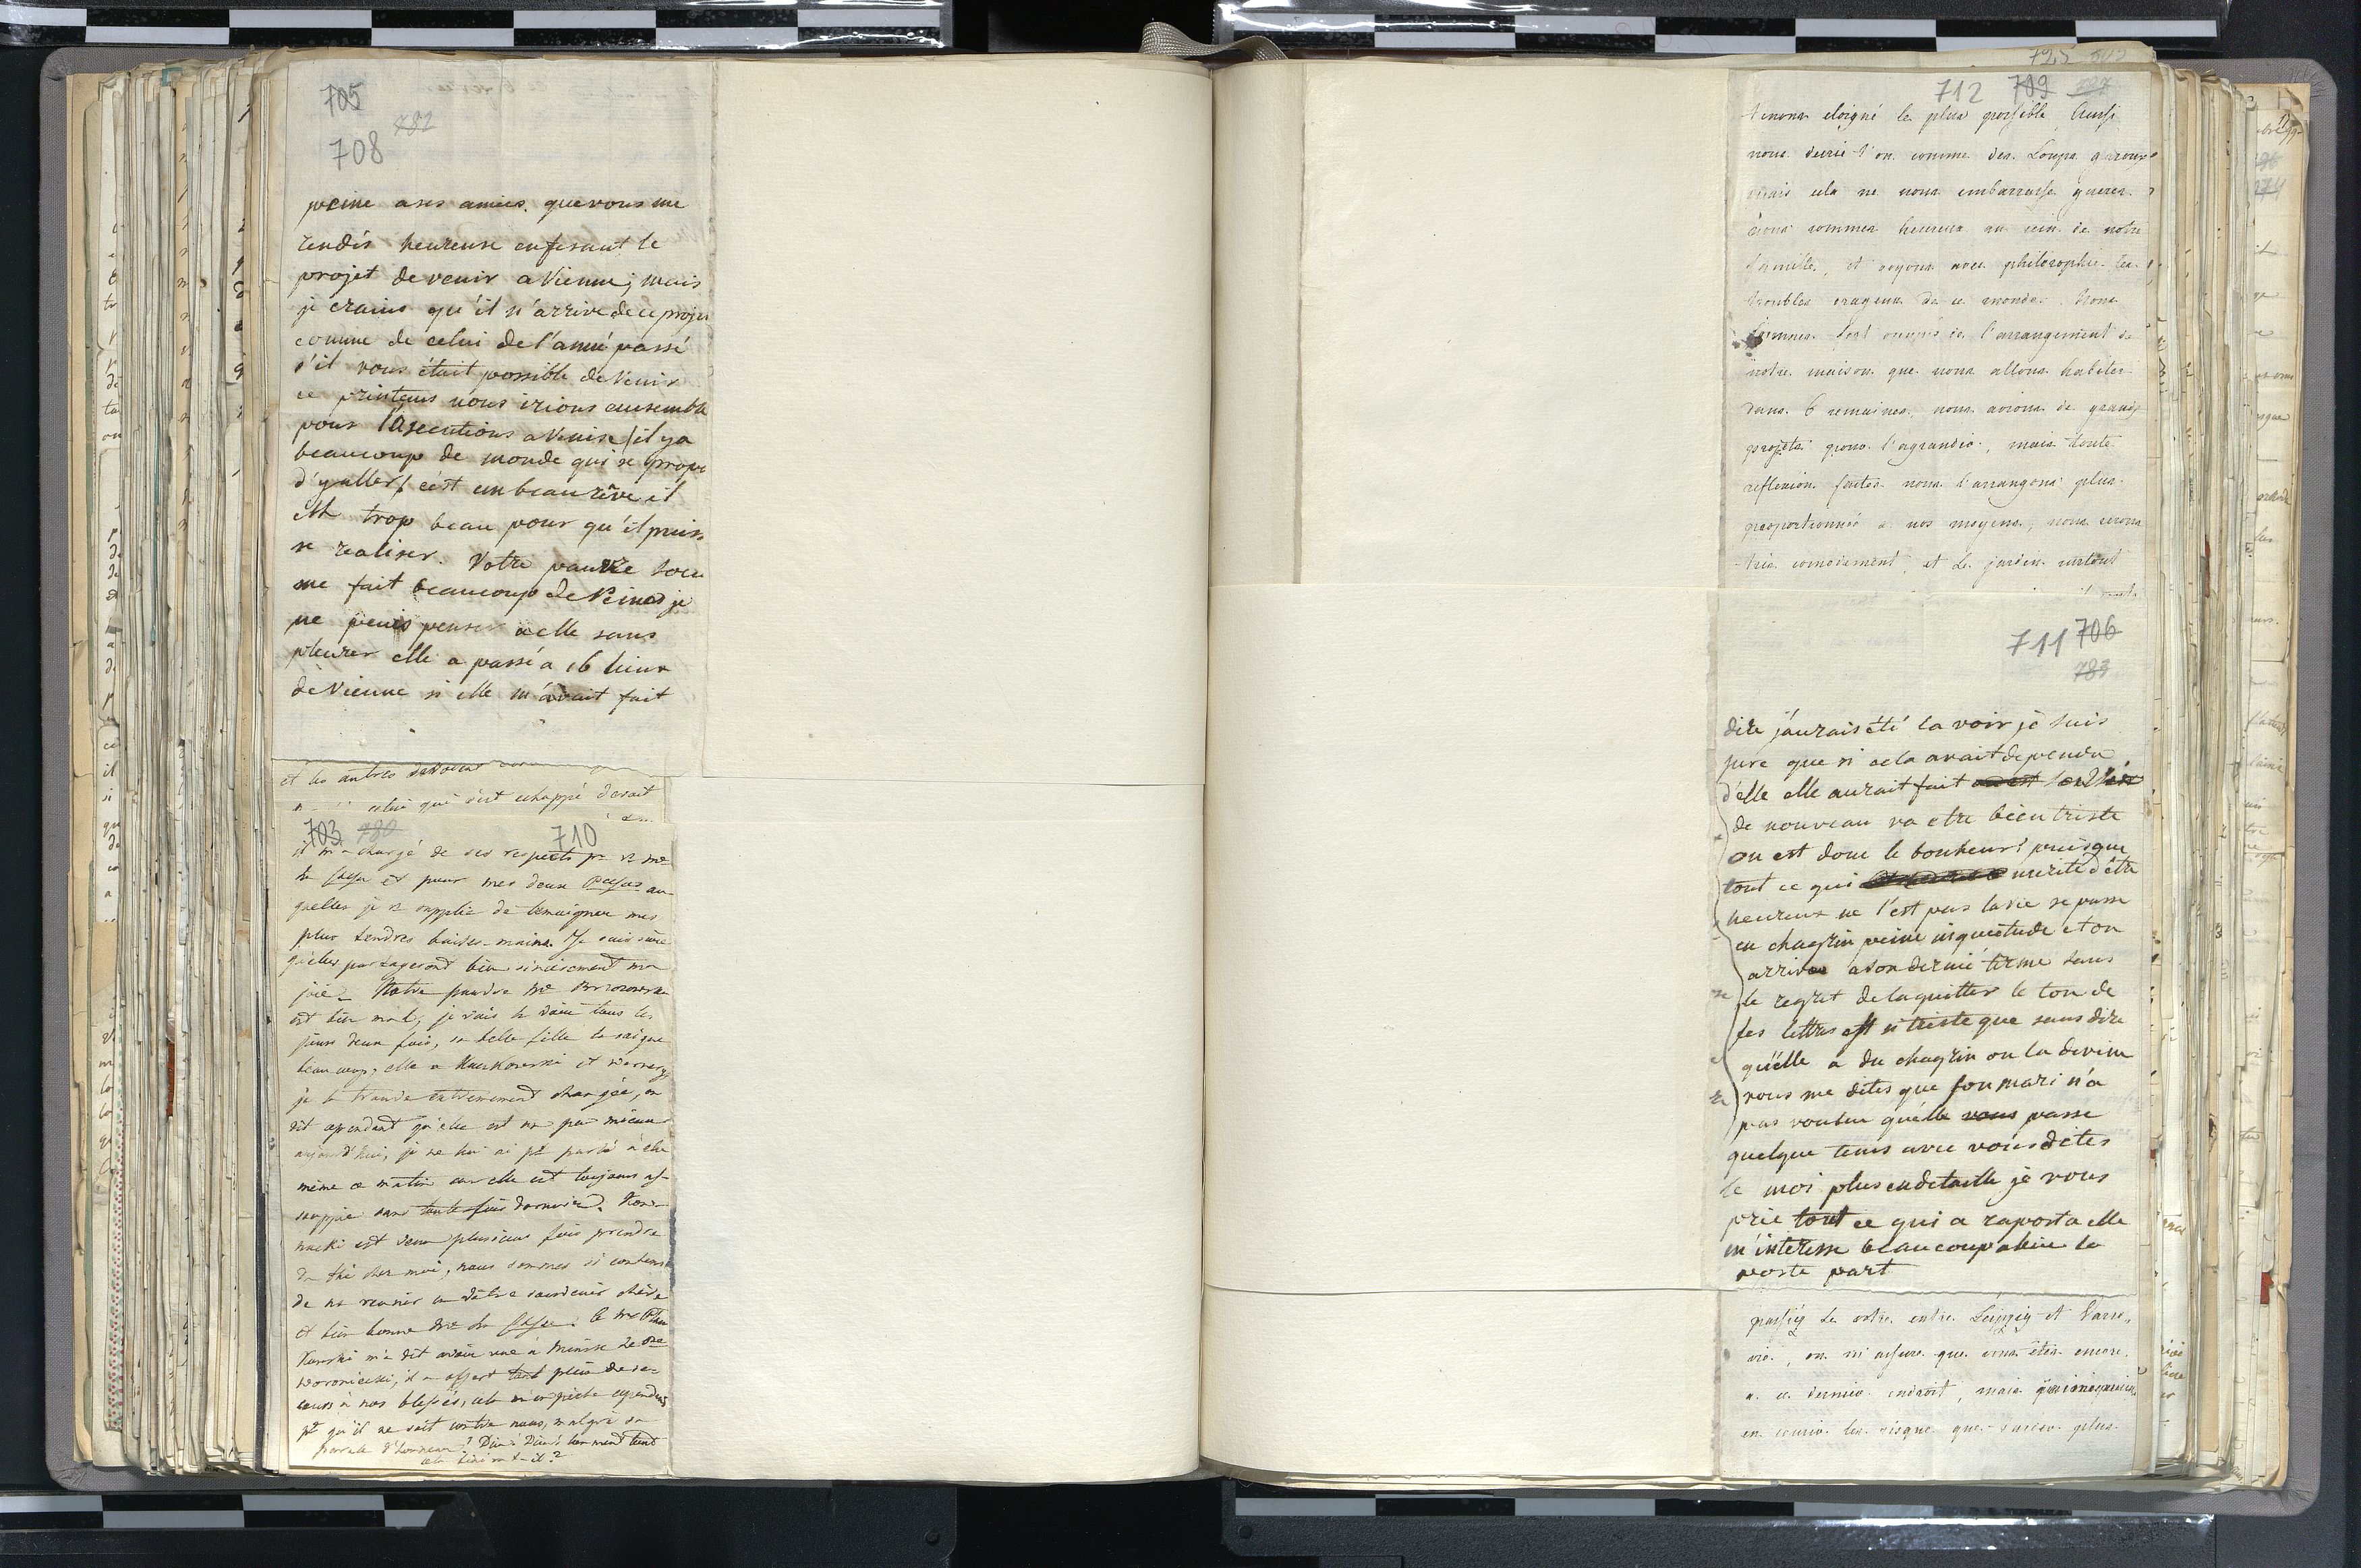 705
782
708
peine a ses amies. que vous me
rendés heureuse enfesant le
projet de venir a Vienne; mais
je crains qu'il n'arrive de ce projet
comme de celui de l'anné passé
s'il vous était possible de venir
ce printems nous irions ensemble
pour l'Ascentions a Venise / il y a
beaucoup de monde qui se propo
d'y aller / c'est un beau rêve il
est trop beau pour qu'il puis
se realiser. Votre pauvre soeu
me fait beaucoup de Peines je
ne peuis penser a elle sans
pleurer elle a passé a 16 lieux
de Vienne si elle m'avait fait
et les autres
celui qui s'est echappé devait
703 780 710
il m'a chargé de ses respects pr
et pour mes deux au
quelles je supplie de temoigner mes
plus tendres baises-mains. Je suis sûre
qu'elles partageront bien sincèrement ma
joie. Notre pauvre Brzozowska
est bien mal, je vais la voir tous les
jours deux fois, sa belle fille la saigne
beaucoup, elle a
je la trouve extremement changée, on
dit cependant qu'elle est un peu mieux
aujourd'hui, je ne lui ai pt parlé à elle
même ce matin car elle est toujours as-
soupie sans toute fois dormir.
est venu plusieurs fois prendre
du thé chez moi, nous sommes si contens
de
et bien bonne
m'a dit avoir vue à Minsk
il a offert tout plein de se-
cours à nos blessés, cela n'empêche cependant
pt qu'il ne soit contre nous, malgré sa
parole d'honneur! Dieu! Dieu! comment tout
cela finira-t-il?
725
712 709
tenons eloigné le plus possible Aussi
nous decrie-t'on comme des Loups garoux
mais cela ne nous embarrasse gueres.
nous sommes heureux au sein de notre
famille, et voyons avec philosophie les
troubles orageux de ce monde. Nous
sommes fort occupés de l'arrangement de
notre maison que nous allons habiter
dans 6 semaines, nous avions de grands
projets pour l'agrandir, mais toute
reflexion faites nous l'arrangons plus
proportionnée a nos moyens, nous serons
très comodement, et le jardin surtout
711 706
783
dire j'aurais été la voir je suis
sure que si cela avait dependu
d'elle elle aurait fait
de nouveau va etre bien triste
ou est donc le bonheur? puisque
tout ce qui merite d'être
heureux ne l'est pas la vie se passe
en chagrin peine inquietude et on
arrive a son dernié terme sans
le regret de la quitter le ton de
ses lettres est si triste que sans dire
qu'elle a du chagrin on la devine
vous me dites que son mari n'a
pas voulu qu'elle vous passe
quelque tems avec vous dites
le moi plus en detaille je vous
prie tout ce qui a raport a elle
m'interesse beaucoup adieu la
poste part
passiez le votre entre Leipzig et Varso-
vie, on m'assure que vous êtes encore
a ce dernier endroit, mais
en courir les risques que